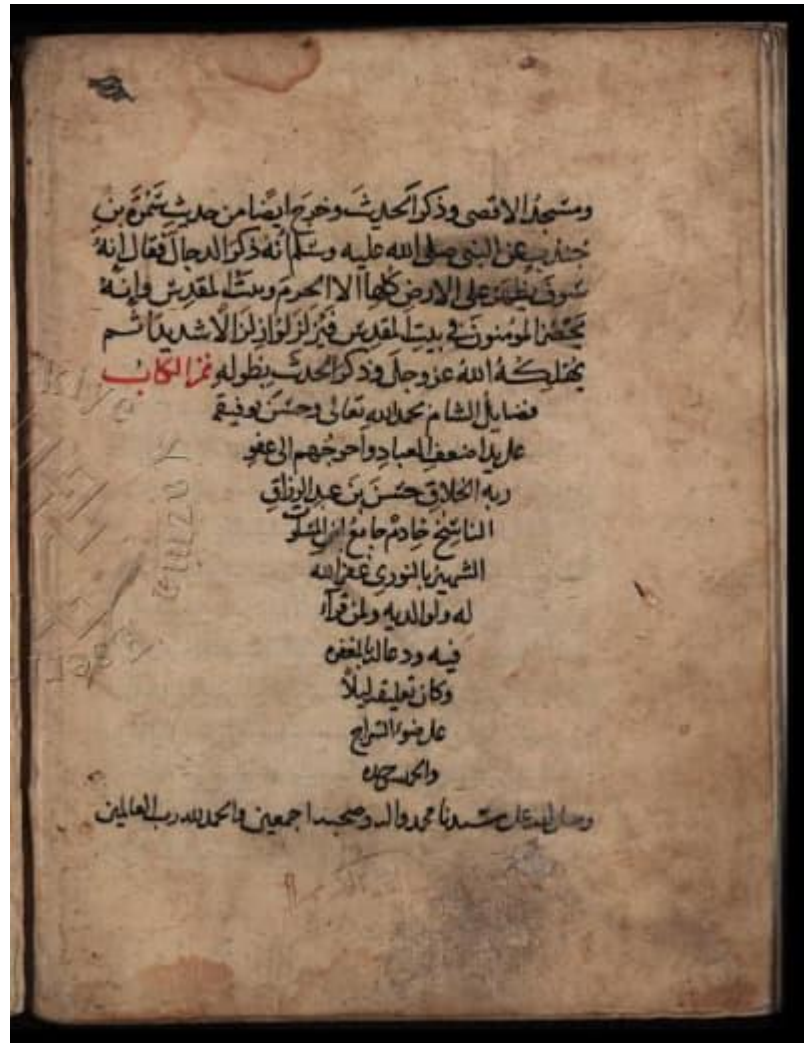 ومسجد الاقصى وذكر الحديث وخرج ايضا من حديث سمرة بن
جندب عن النبي صلى الله عليه وسلم انه ذكر الدجال فقال إنه
سوف يظهر على الارض كلها الا الحرم وبيت المقدس وإنه
يحصر المومنون في بيت المقدس فيزلزلوا زلزالا شديدا ثم
يهلكه الله عز وجل وذكر الحديث بطوله تم الكتاب
فضايل الشام بحمد الله تعالى وحسن توفيقه
على يد اضعف العباد وأحوجهم الى عفو
ربه الخلاق حسن بن عبد الرزاق
الناسخ خادم جامع ابن
الشهير بالنوري غفر الله
له ولوالديه ولمن قرأ
فيه ودعا له بالمغفره
وكان تعليقه ليلا
على ضوء السراج
والحمد
وصلى الله على سيدنا محمد واله وصحبه اجمعين والحمد لله رب العالمين